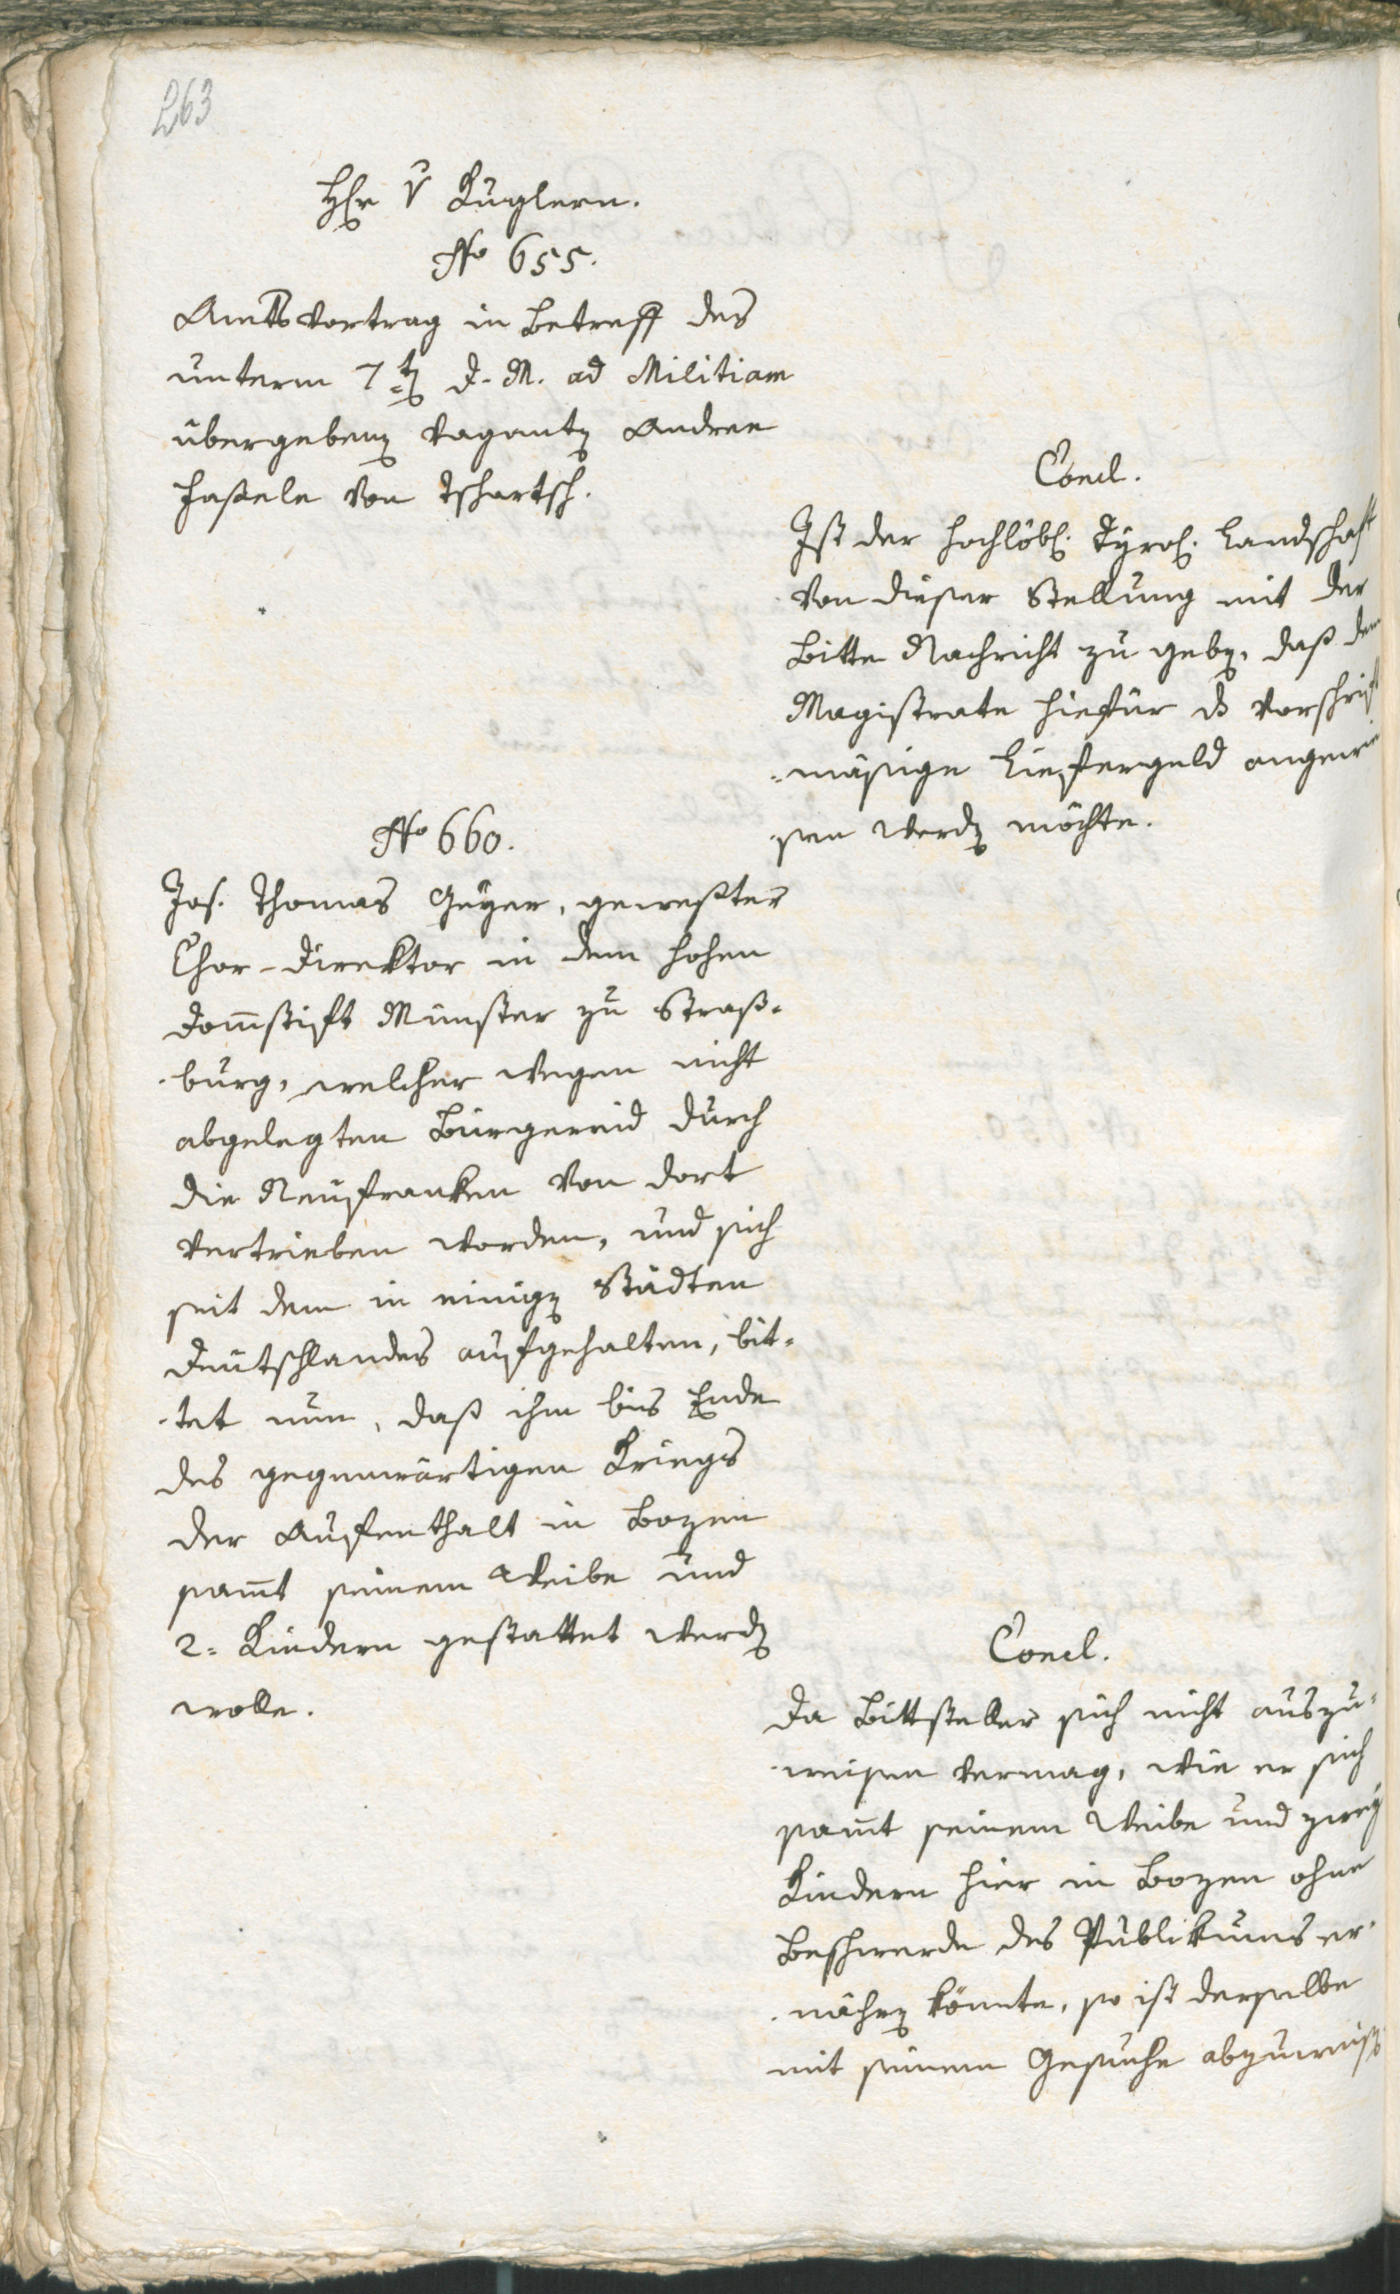 263
Hr v Kuglern.
No 655.
Amtsvortrag in Betreff des
unterm 7ten d. M. ad Militiam
übergeben Vagant Andree
Haßele von Tschartsch.
Concl.
Ist der hochlöbl. Tyrol. Landschaft
von dieser Stellung mit der
Bitte Nachricht zu geben, daß dem
Magistrate hiefür das vorschrift
mäßige Liefergeld angewie
sen werden möchte.
No 660.
Jos. Thomas Geyer, gewester
Chor-Direktor in dem hohen
Domstift Münster zu Straß-
burg, welcher wegen nicht
abgelegten Bürgereid durch
die Neufranken von dort
vertrieben worden, und sich
seit dem in einigen Städten
Deutschlandes aufgehalten, bit-
tet nun, daß ihm bis Ende
des gegenwärtigen Kriegs
der Aufenthalt in Bozen
samt seinem Weibe und
2. Kindern gestattet werden
wolle.
Concl.
Da Bittsteller sich nicht auszu-
weisen vermag, wie er sich
samt seinem Weibe und zwey
Kindern hier in Bozen ohne
Beschwerde des Publikums er-
nähren könnte, so ist derselbe
mit seinem Gesuche abzuweisen